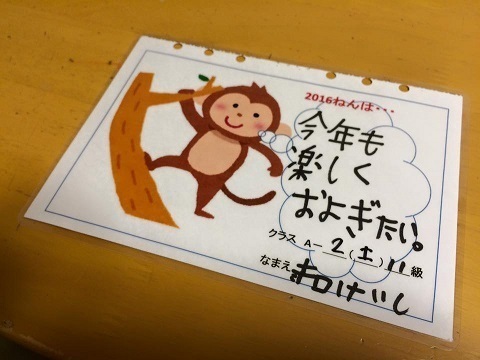 2016ねんは・・・
今年も
楽しく
およぎたい。
クラス A－2(土)11級
なまえ